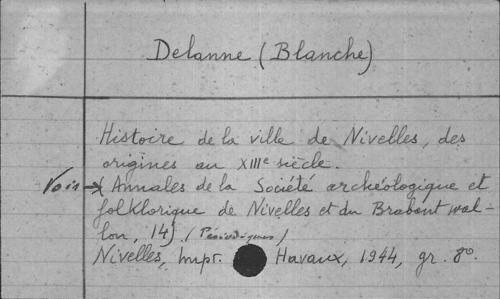 Delanne (Blanche)
Histoire de la ville de Nivelles, des
origines au XIIIe siècle.
Voir → (Annales de la Société archéologique et
folklorique de Nivelles et du Brabant wal-
lon, 14). (Périodiques)
Nivelles, Impr. Havaux, 1944, gr. 8º.